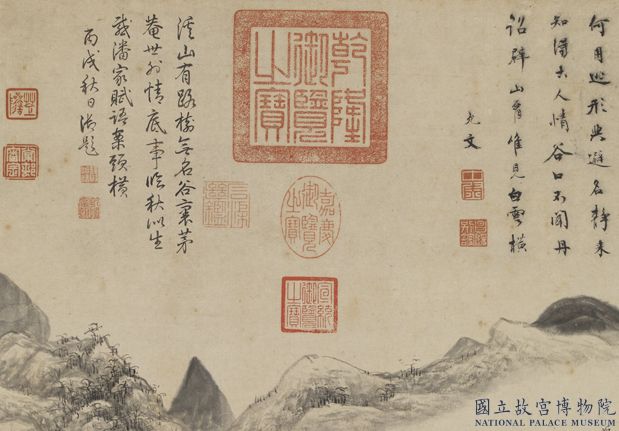 何用逃形與避名靜來
知得古人情谷口不聞丹
詔辟山惟見白雲橫
允文
乾隆
御覽
之寶
嘉慶
御覽
之寶
宣統
御覽
之寶
溪山有路樹無名谷裏茅
菴世外情底事臨秋似生
感潘家賦語案頭橫
丙戌秋日御題
國立故宮博物院
NATIONAL PALACE MUSEUM